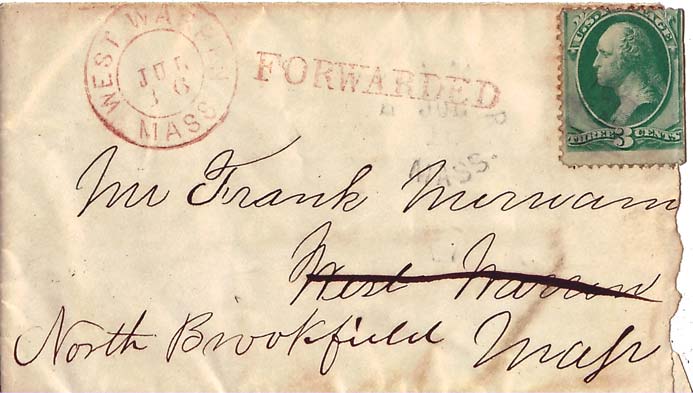 WEST WARREN
JUL
16
MASS
FORWARDED
U.S. POSTAGE
THREE 3 CENTS
JUL
MASS.
Mr Frank Merriam
West Warren
North Brookfield Mass